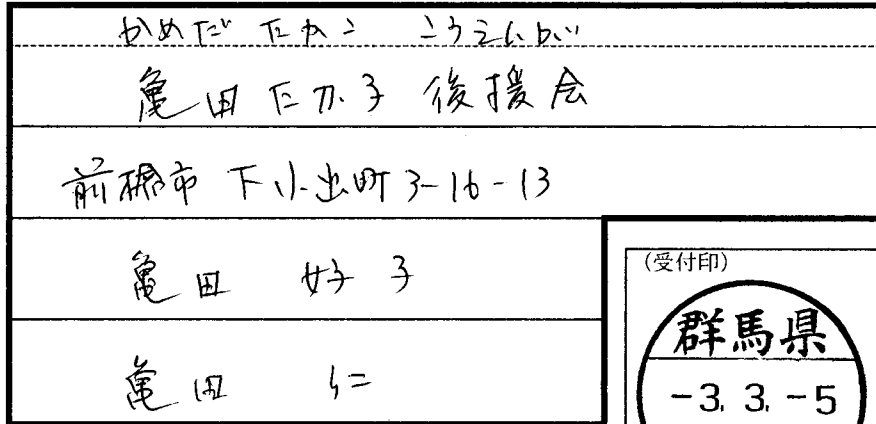 かめだ たかこ こうえんかい
亀田たか子後援会
前橋市下小出町3-16-13
亀田 好子
亀田 仁
(受付印)
群馬県
-3. 3. -5